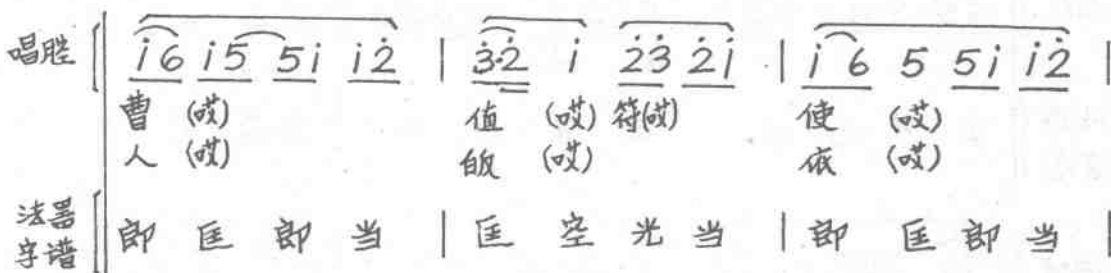 唱腔 i̇6 i̇5 5i̇ i̇2̇ | 3̇·2̇ i̇ 2̇3̇ 2̇i̇ | i̇6 5 5i̇ i̇2̇ |
曹 (哎) 值 (哎) 符(哎) 使 (哎)
人 (哎) 皈 (哎) 依 (哎)
法器
字谱 郎 匡 郎 当 | 匡 空 光 当 | 郎 匡 郎 当 |